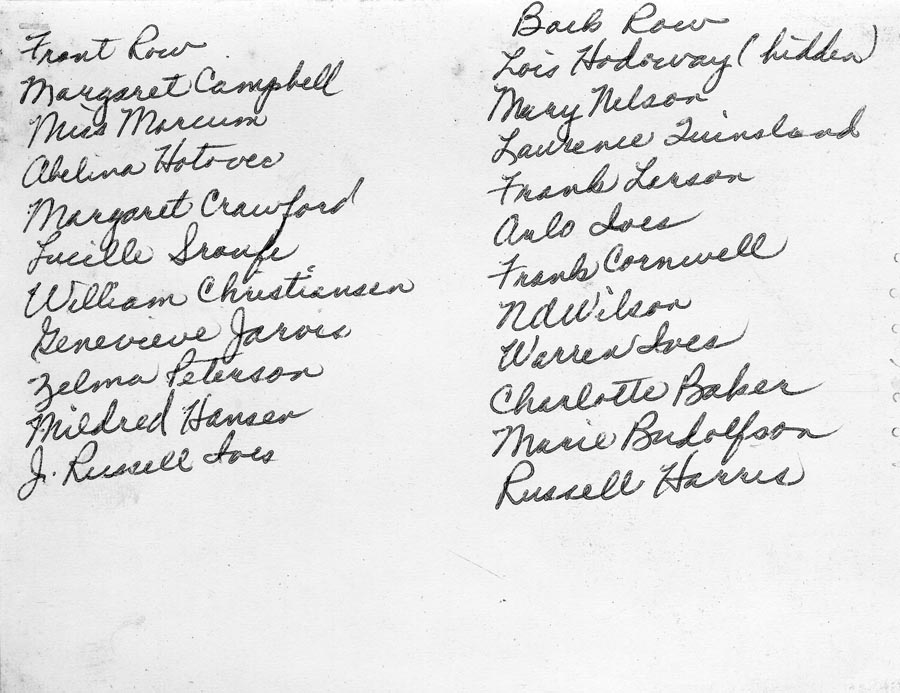 Front Row
Margaret Campbell
Miss Marcum
Abelina Hotovec
Margaret Crawford
Lucille Sroufe
William Christiansen
Genevieve Jarvis
Zelma Peterson
Mildred Hansen
J. Russell Ives
Back Row
Lois Hodoway (hidden)
Mary Nelson
Laurence
Frank Larson
Arlo Ives
Frank Cornwell
Nd Wilson
Warren Ives
Charlotte Baker
Marie Budolfson
Russell Harris